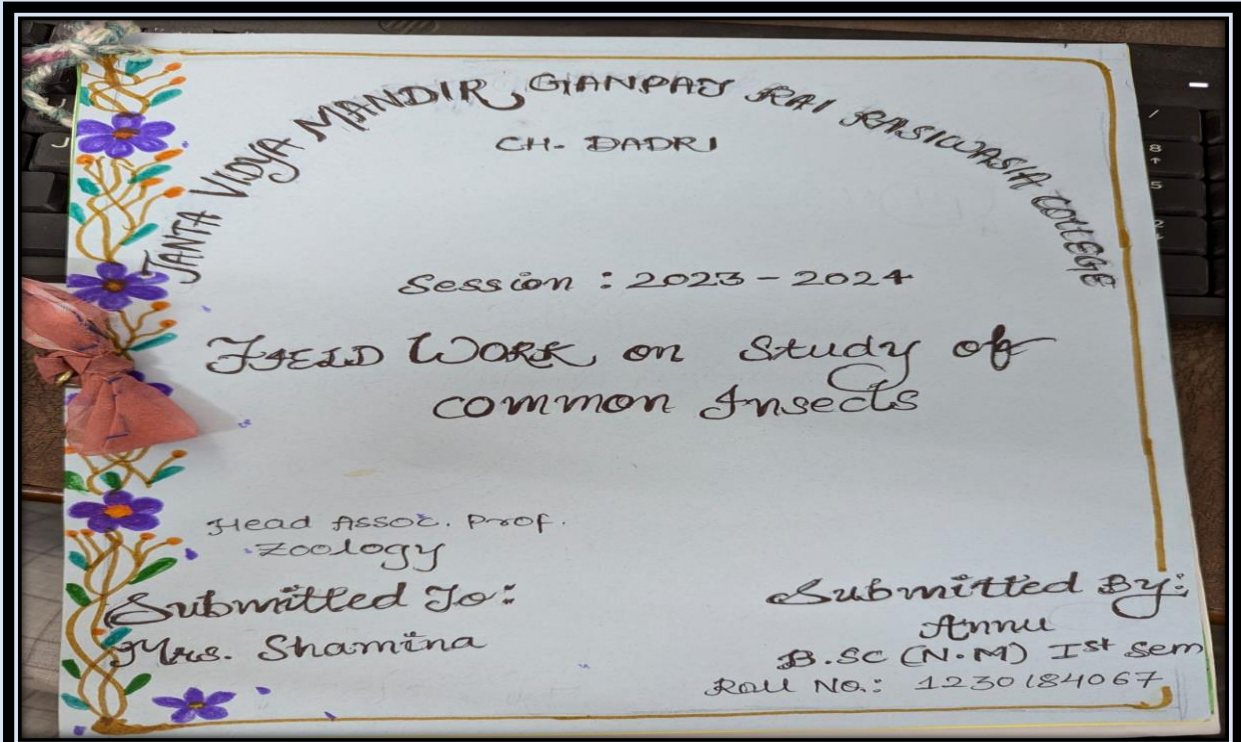 JANTA VIDYA MANDIR GANPAT RAI RASIWASIA COLLEGE
CH. DADRI
Session : 2023-2024
FIELD WORK on Study of
common Insects
Head Assoc. Prof.
Zoology
Submitted To:
Mrs. Shamina
Submitted By:
Annu
B.SC (N.M) Ist Sem
Roll No.: 1230184067